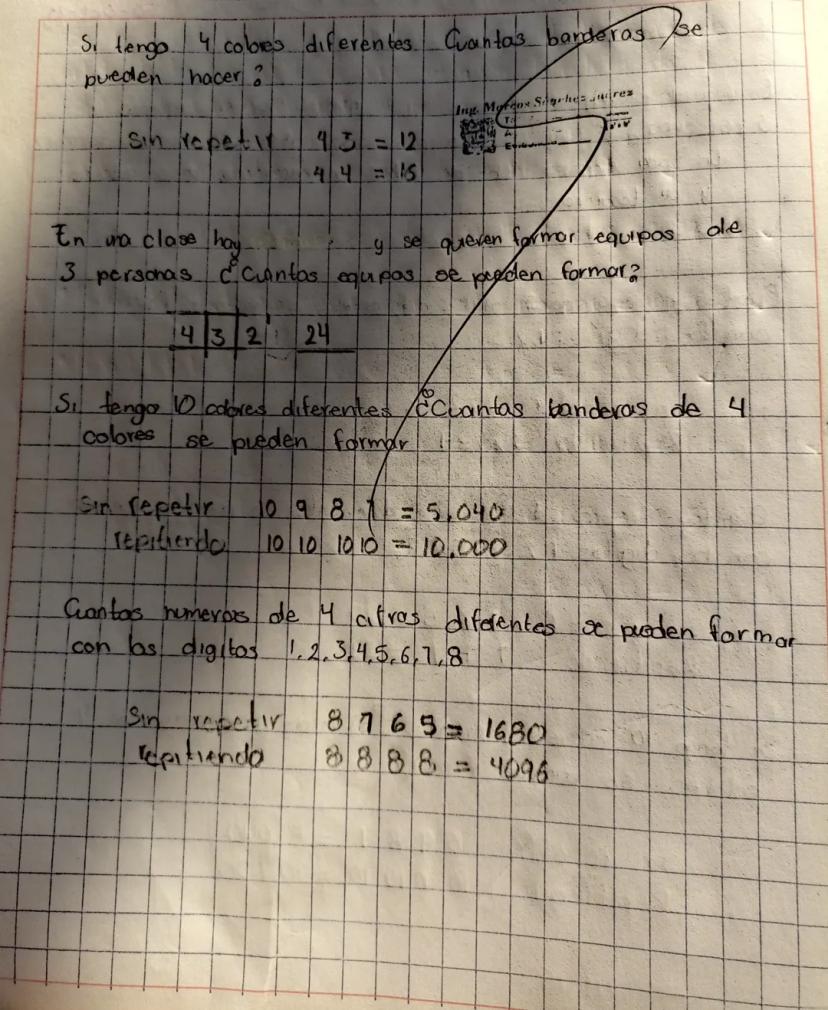 Si tengo 4 colores diferentes Cuantas banderas se
pueden hacer?
Ing. Marcos Sánchez Juárez
Sin repetir 4 3 = 12
4 4 = 15
En una clase hay y se quieren formar equipos de
3 personas ¿Cuantos equipos se pueden formar?
4 3 2 24
Si tengo 10 colores diferentes ¿Cuantas banderas de 4
colores se pueden formar
Sin repetir 10 9 8 7 = 5,040
repitiendo 10 10 10 10 = 10,000
Cuantos numeros de 4 cifras diferentes se pueden formar
con los digitos 1,2,3,4,5,6,7,8
Sin repetir 8 7 6 5 = 1680
repitiendo 8 8 8 8 = 4096